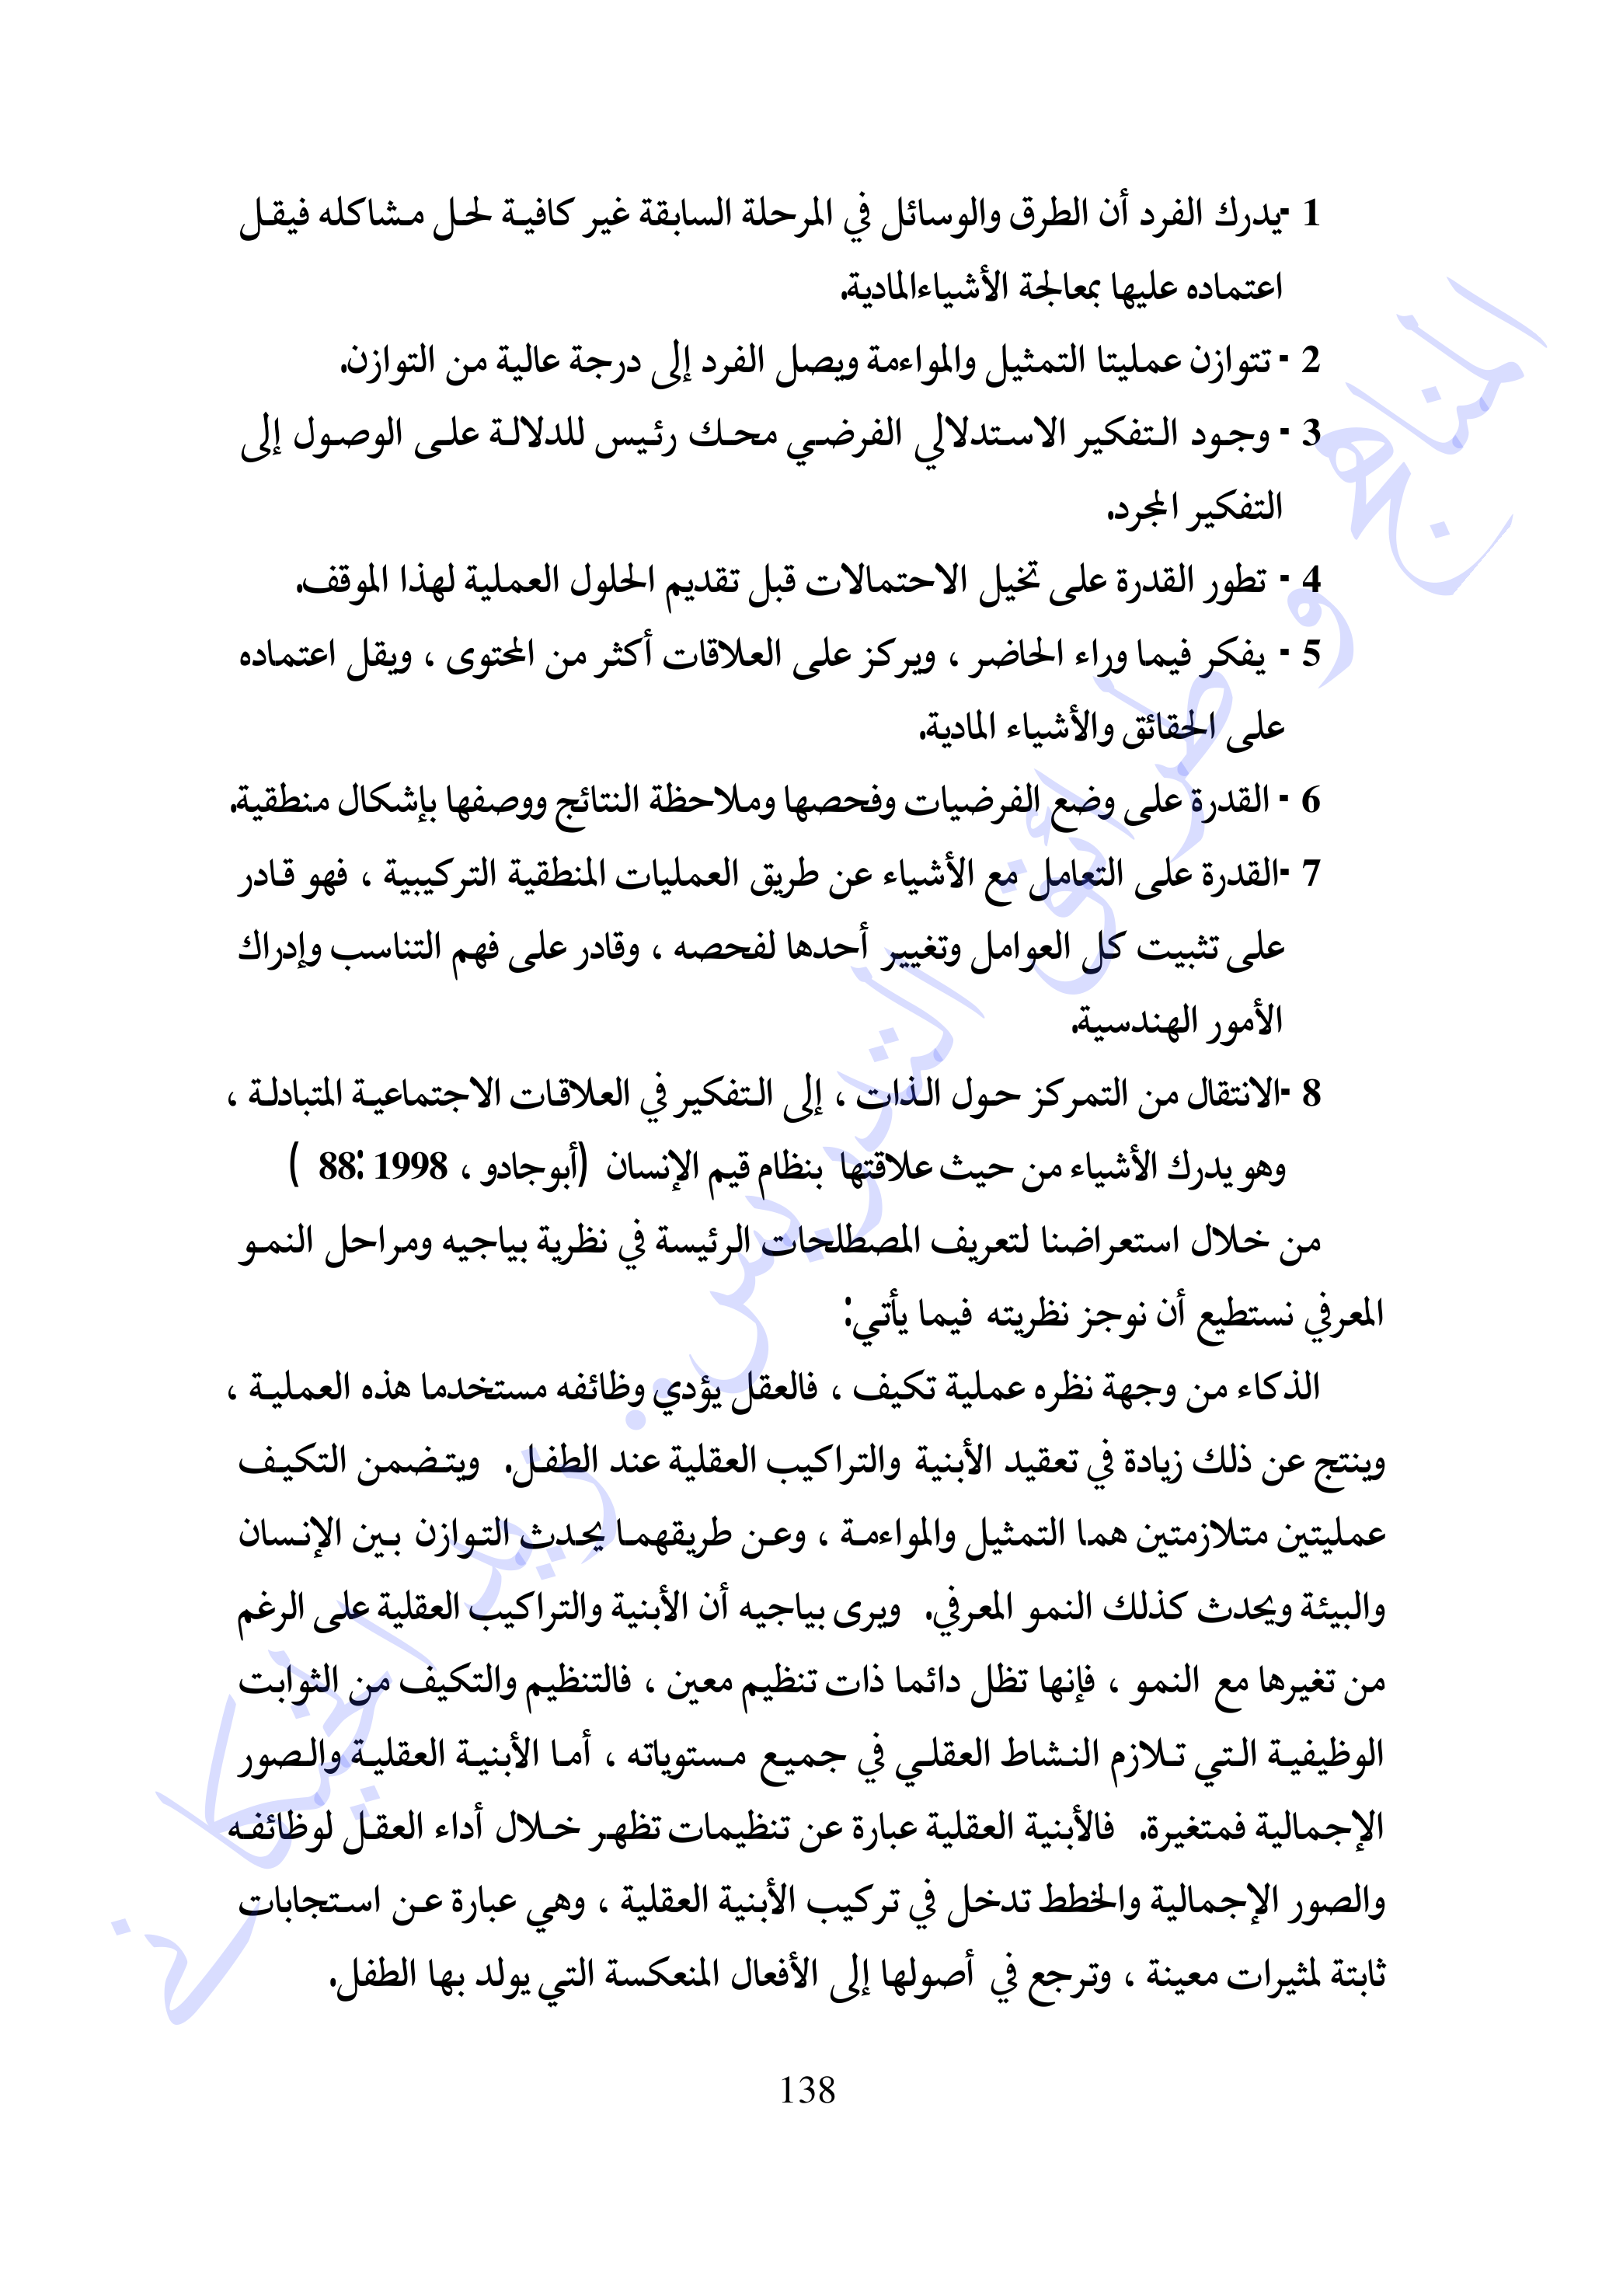 1 -يدرك الفرد أن الطرق والوسائل في المرحلة السابقة غير كافية لحل مشاكله فيقل
اعتماده عليها بمعالجة الأشياءالمادية.
2 - تتوازن عمليتا التمثيل والمواءمة ويصل الفرد إلى درجة عالية من التوازن.
3 - وجود التفكير الاستدلالي الفرضي محك رئيس للدلالة على الوصول إلى
التفكير المجرد.
4 - تطور القدرة على تخيل الاحتمالات قبل تقديم الحلول العملية لهذا الموقف.
5 - يفكر فيما وراء الحاضر ، ويركز على العلاقات أكثر من المحتوى ، ويقل اعتماده
على الحقائق والأشياء المادية.
6 - القدرة على وضع الفرضيات وفحصها وملاحظة النتائج ووصفها بإشكال منطقية.
7 -القدرة على التعامل مع الأشياء عن طريق العمليات المنطقية التركيبية ، فهو قادر
على تثبيت كل العوامل وتغيير أحدها لفحصه ، وقادر على فهم التناسب وإدراك
الأمور الهندسية.
8 -الانتقال من التمركز حول الذات ، إلى التفكير في العلاقات الاجتماعية المتبادلة ،
وهو يدرك الأشياء من حيث علاقتها بنظام قيم الإنسان (أبوجادو ، 1998 :88 )
من خلال استعراضنا لتعريف المصطلحات الرئيسة في نظرية بياجيه ومراحل النمو
المعرفي نستطيع أن نوجز نظريته فيما يأتي:
الذكاء من وجهة نظره عملية تكيف ، فالعقل يؤدي وظائفه مستخدما هذه العملية ،
وينتج عن ذلك زيادة في تعقيد الأبنية والتراكيب العقلية عند الطفل. ويتضمن التكيف
عمليتين متلازمتين هما التمثيل والمواءمة ، وعن طريقهما يحدث التوازن بين الإنسان
والبيئة ويحدث كذلك النمو المعرفي. ويرى بياجيه أن الأبنية والتراكيب العقلية على الرغم
من تغيرها مع النمو ، فإنها تظل دائما ذات تنظيم معين ، فالتنظيم والتكيف من الثوابت
الوظيفية التي تلازم النشاط العقلي في جميع مستوياته ، أما الأبنية العقلية والصور
الإجمالية فمتغيرة. فالأبنية العقلية عبارة عن تنظيمات تظهر خلال أداء العقل لوظائفه
والصور الإجمالية والخطط تدخل في تركيب الأبنية العقلية ، وهي عبارة عن استجابات
ثابتة لمثيرات معينة ، وترجع في أصولها إلى الأفعال المنعكسة التي يولد بها الطفل.
138